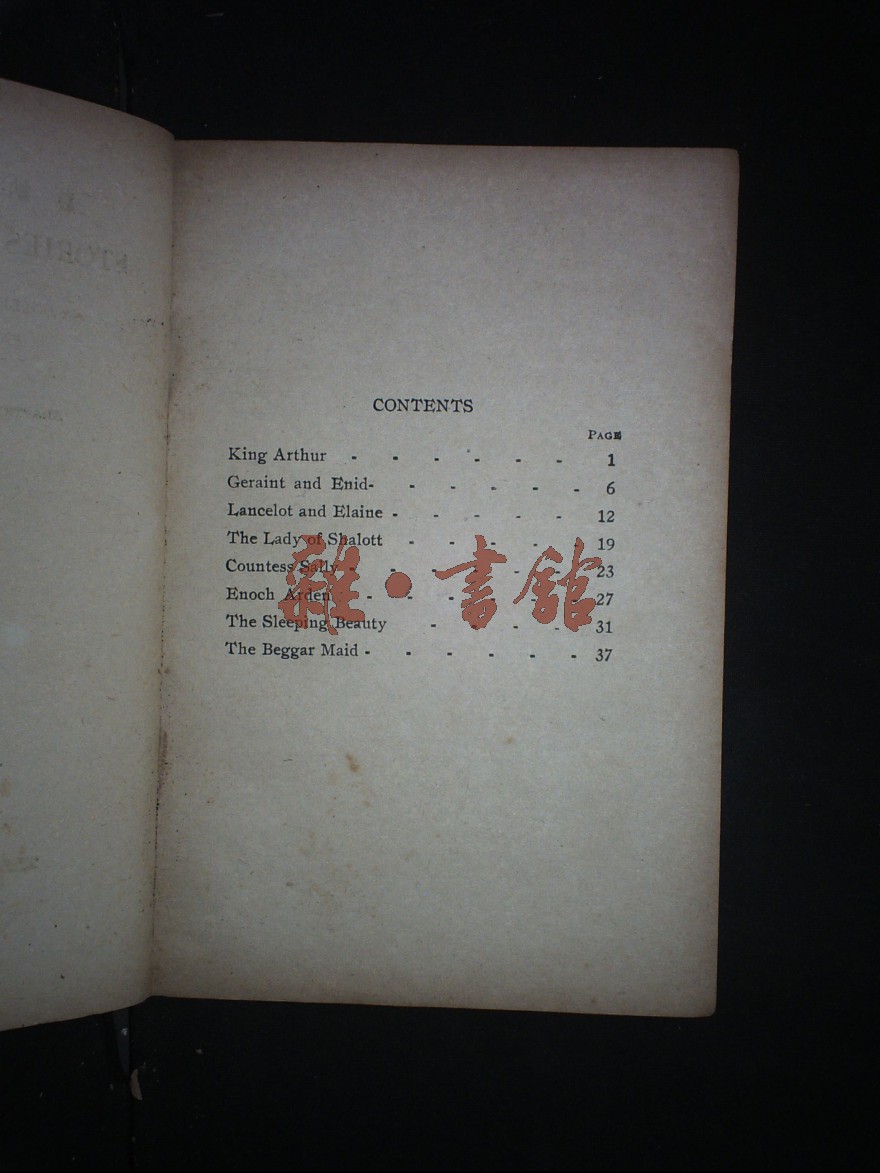 STORIES
CONTENTS
PAGE
King Arthur - - - - - - 1
Geraint and Enid- - - - - - 6
Lancelot and Elaine - - - - - 12
The Lady of Shalott - - - - - 19
Countess Sally - - - - - - 23
Enoch Arden - - - - - - 27
The Sleeping Beauty - - - - 31
The Beggar Maid - - - - - - 37
雜·書館